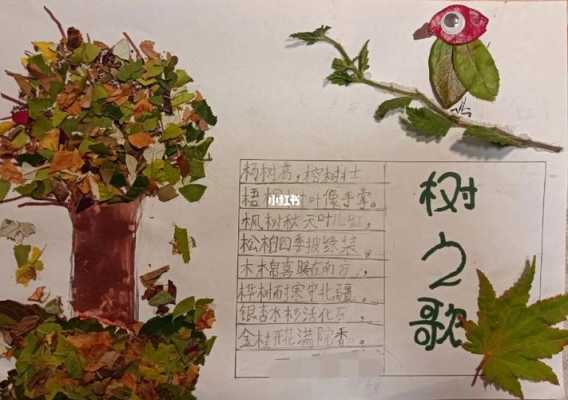 杨树高，榕树壮
梧桐树叶像手掌。
枫树秋天叶儿红，
松柏四季披绿装。
木棉喜暖在南方，
桦树耐寒守北疆。
银杏水杉活化石，
金桂开花满院香。
树之歌
小红书